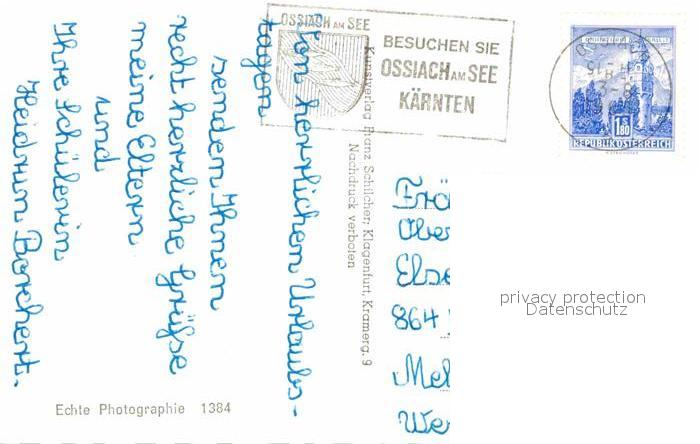 Von herrlichen Urlaubs-
tagen
senden Ihnen
recht herzliche Grüße
meine Eltern
und
Ihre Schülerin
Heidrun Borchert.
Echte Photographie 1384
Kunstverlag Franz Schilcher, Klagenfurt, Kramerg. 9
Nachdruck verboten
OSSIACH AM SEE
BESUCHEN SIE
OSSIACH AM SEE
KÄRNTEN
1.80
REPUBLIK ÖSTERREICH
Frö
Ober
Else
864
Mel
Wer
privacy protection
Datenschutz